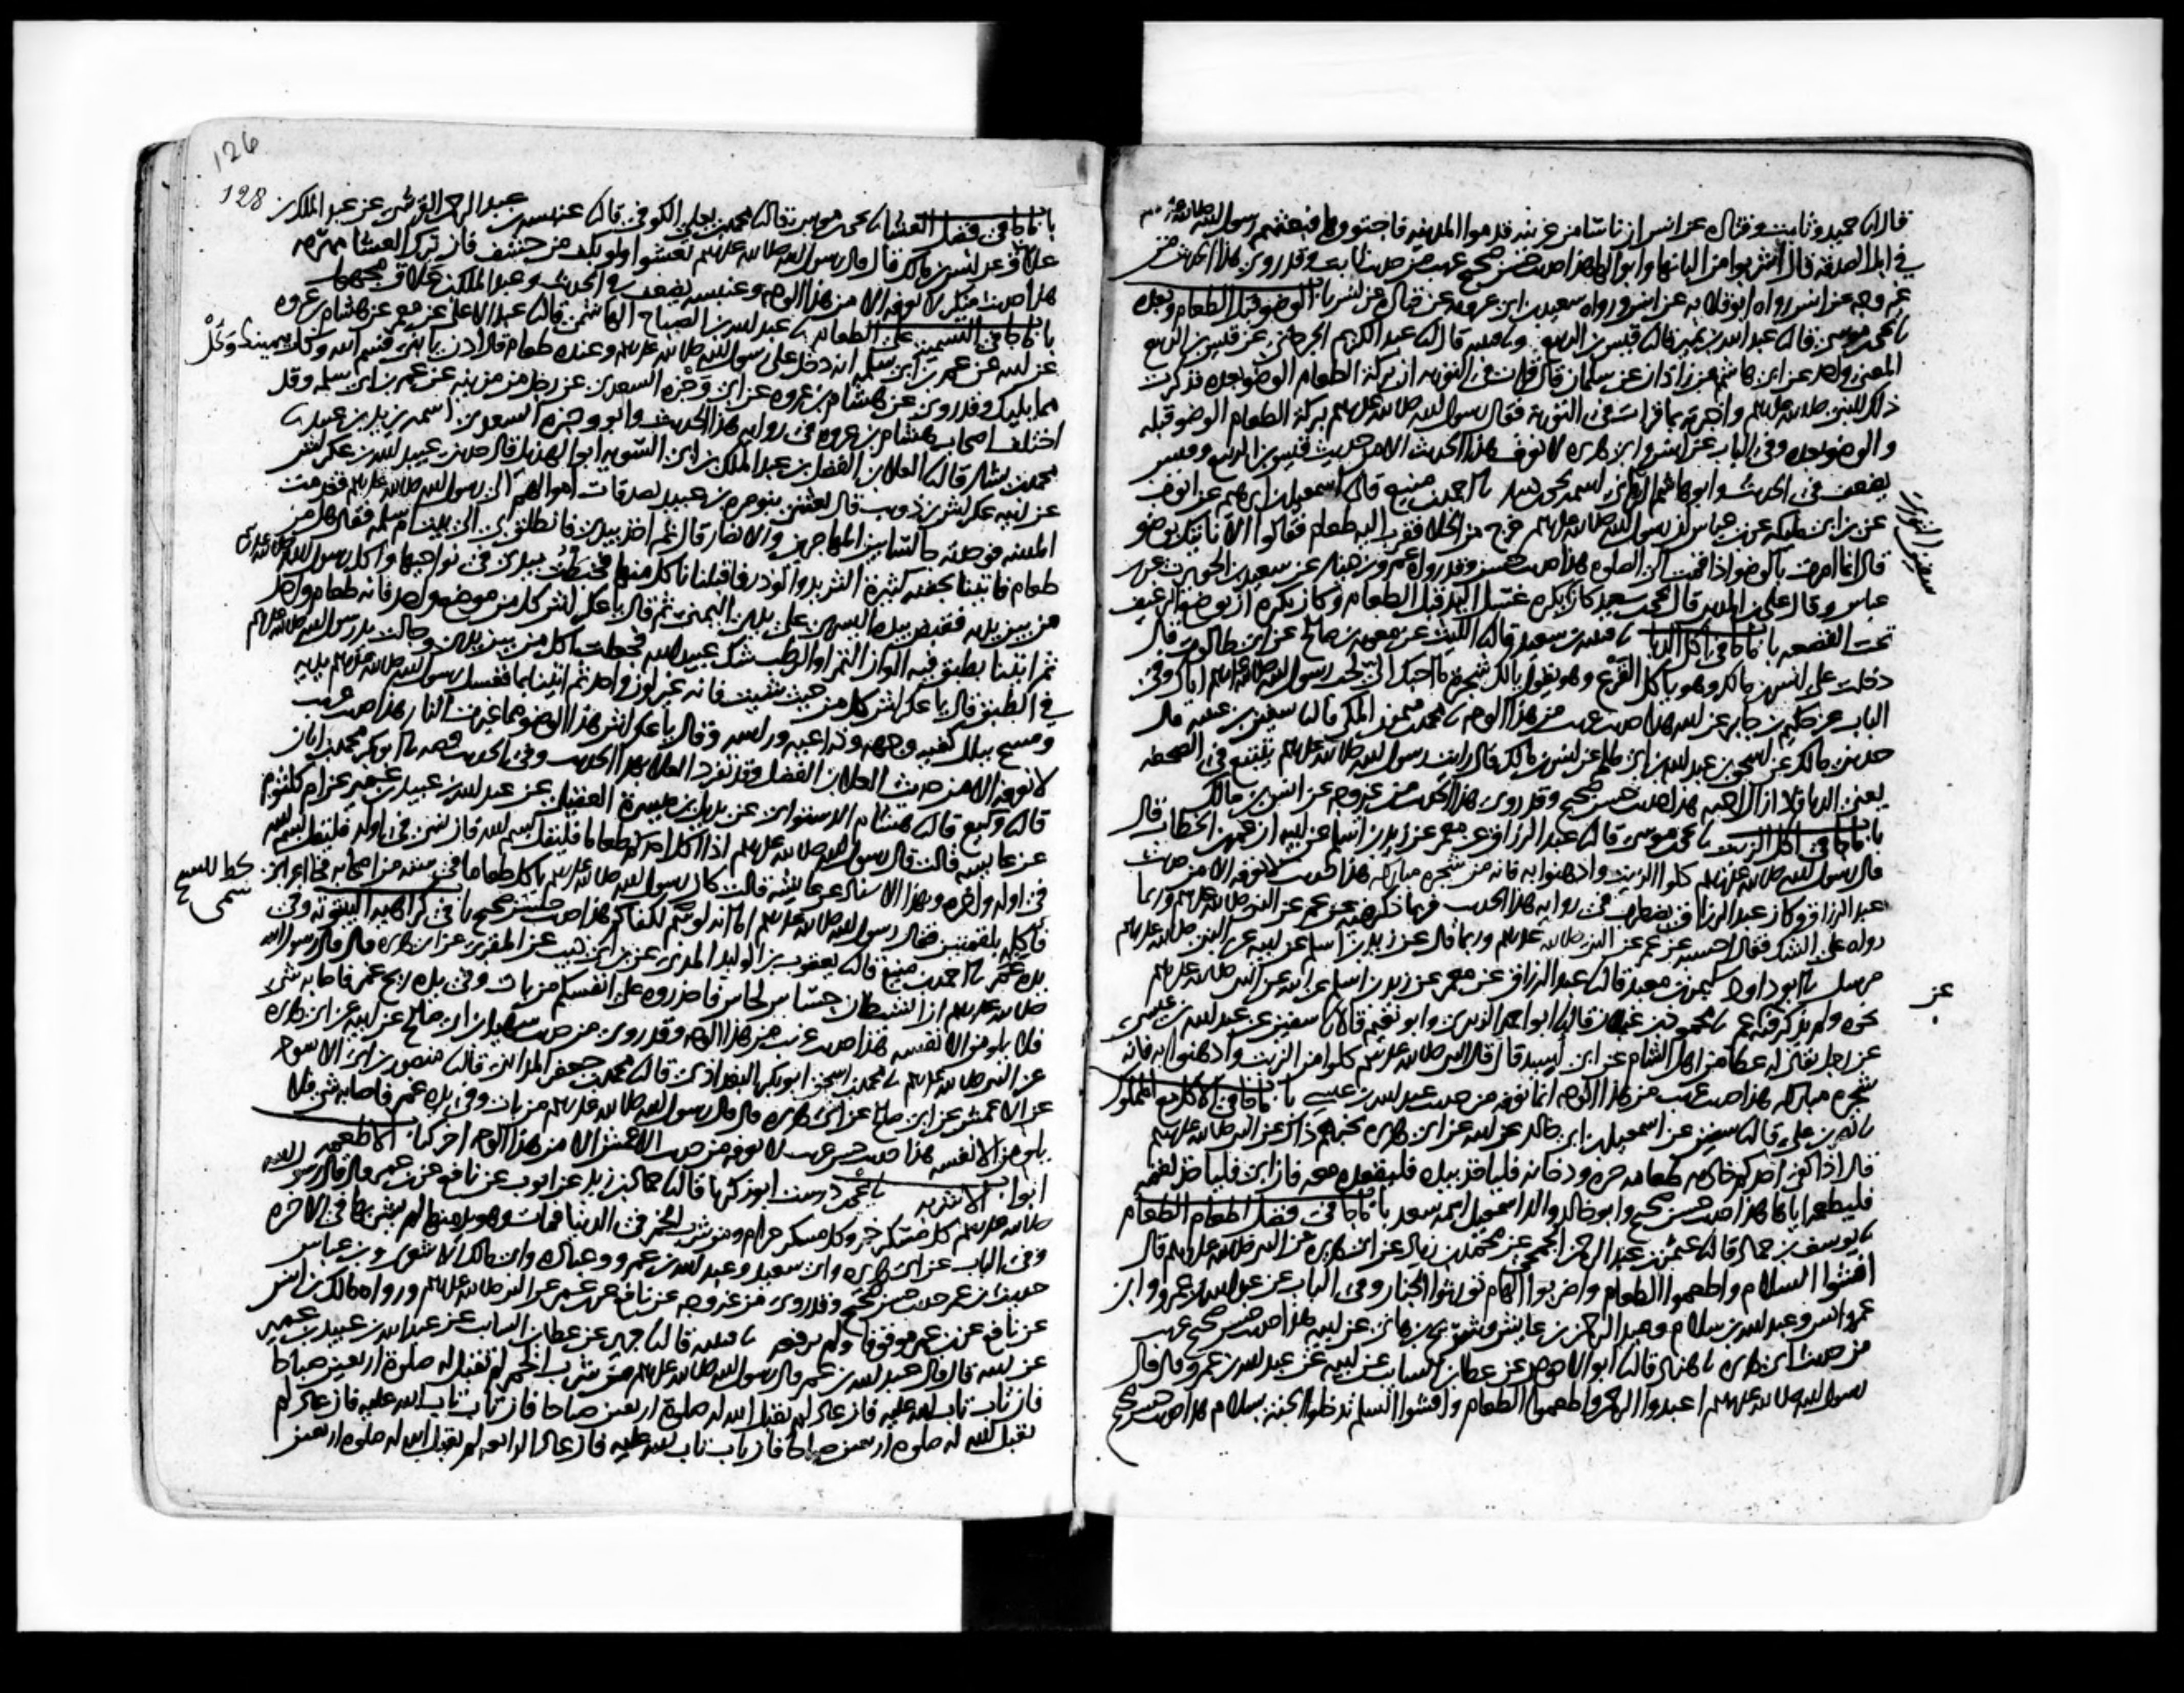 قال انا حميد وثابت وقتادة عن انس ان ناسا من عرينة قدموا المدينة فاجتووها فبعثهم رسول الله صلى الله عليه وسلم
في ابل الصدقة قال اشربوا من البانها وابوالها هذا حديث حسن صحيح غريب من حديث ثابت وقد روى هذا الحديث من
غير وجه عن انس رواه ابو قلابة عن انس ورواه سعيد بن ابي عروبة عن قتادة عن انس باب الوضو قبل الطعام وبعده
نا يحيى بن موسى قال نا عبد الله بن نمير قال نا قيس بن الربيع ونا قتيبة قال نا عبد الكريم الجرجاني عن قيس بن الربيع
المعنى واحد عن ابي هاشم عن زاذان عن سلمان قال قرات في التورية ان بركة الطعام الوضو بعده فذكرت
ذلك للنبي صلى الله عليه وسلم واخبرته بما قرات في التورية فقال رسول الله صلى الله عليه وسلم بركة الطعام الوضو قبله
والوضو بعده وفي الباب عن انس وابي هريرة لا نعرف هذا الحديث الا من حديث قيس بن الربيع وقيس
يضعف في الحديث وابو هاشم الرماني اسمه يحيى بن دينار نا احمد بن منيع قال نا اسمعيل بن ابرهيم عن ايوب
عن ابن ابي مليكة عن ابن عباس ان رسول الله صلى الله عليه وسلم خرج من الخلا فقرب اليه طعام فقالوا الا ناتيك بوضو
سفين الثوري
قال انما امرت بالوضو اذا قمت الى الصلوة هذا حديث حسن وقد رواه عمرو بن دينار عن سعيد بن الحويرث عن ابن
عباس وقال علي بن المديني قال يحيى بن سعيد كان يكره غسل اليد قبل الطعام وكان يكره ان يوضع الرغيف
تحت القصعة باب ما جا في اكل الدبا نا قتيبة بن سعيد قال نا الليث عن معوية بن صالح عن ابي طالوت قال
دخلت على انس بن مالك وهو ياكل القرع وهو يقول يا لك شجرة ما احبك الي لحب رسول الله صلى الله عليه وسلم اياك وفي
الباب عن حكيم بن جابر عن ابيه هذا حديث غريب من هذا الوجه نا محمد بن ميمون المكي قال نا سفين بن عيينة قال
حدثني مالك عن اسحق بن عبد الله بن ابي طلحة عن انس بن مالك قال رايت رسول الله صلى الله عليه وسلم يتتبع في الصحفة
يعني الدبا فلا ازال احبه هذا حديث حسن صحيح وقد روى هذا الحديث من غير وجه عن انس بن مالك
باب ما جا في اكل الزيت نا يحيى بن موسى قال نا عبد الرزاق عن معمر عن زيد بن اسلم عن ابيه ان عمر بن الخطاب قال
قال رسول الله صلى الله عليه وسلم كلوا الزيت وادهنوا به فانه من شجرة مباركة هذا حديث لا نعرفه الا من حديث
عبد الرزاق وكان عبد الرزاق يضطرب في رواية هذا الحديث فربما ذكر فيه عن عمر عن النبي صلى الله عليه وسلم وربما
رواه على الشك فقال احسبه عن عمر عن النبي صلى الله عليه وسلم وربما قال عن زيد بن اسلم عن ابيه عن النبي صلى الله عليه وسلم
مرسل نا ابو داود سليمن بن معبد قال نا عبد الرزاق عن معمر عن زيد بن اسلم عن ابيه عن النبي صلى الله عليه وسلم
نحوه ولم يذكر فيه عمر نا محمود بن غيلان قال نا ابو احمد الزبيري وابو نعيم قالا نا سفين عن عبد الله بن عيسى
عن
عن رجل يقال له عطا من اهل الشام عن ابي اسيد قال قال النبي صلى الله عليه وسلم كلوا من الزيت وادهنوا به فانه
شجرة مباركة هذا حديث غريب من هذا الوجه انما نعرفه من حديث عبد الله بن عيسى باب ما جا في الاكل مع المملوك
نا نصر بن علي قال نا سفين عن اسمعيل بن ابي خالد عن ابيه عن ابي هريرة يخبرهم ذاك عن النبي صلى الله عليه وسلم
قال اذا كفى احدكم خادمه طعامه حره ودخانه فلياخذ بيده فليقعده معه فان ابى فلياخذ لقمة
فليطعمه اياها هذا حديث حسن صحيح وابو خالد والد اسمعيل اسمه سعد باب ما جا في فضل اطعام الطعام
نا يوسف بن حماد قال نا عثمن بن عبد الرحمن الجمحي عن محمد بن زياد عن ابي هريرة عن النبي صلى الله عليه وسلم قال
افشوا السلام واطعموا الطعام واضربوا الهام تورثوا الجنان وفي الباب عن عبد الله بن عمرو وابن
عمر وانس وعبد الله بن سلام وعبد الرحمن بن عايش وشريح بن هاني عن ابيه هذا حديث حسن صحيح غريب
من حديث ابي هريرة نا هناد قال نا ابو الاحوص عن عطا بن السايب عن ابيه عن عبد الله بن عمرو قال قال
رسول الله صلى الله عليه وسلم اعبدوا الرحمن واطعموا الطعام وافشوا السلم تدخلوا الجنة بسلام هذا حديث حسن صحيح
126
128
باب ما جا في فضل العشا نا يحيى بن موسى قال نا محمد بن يعلى الكوفي قال نا عنبسة بن عبد الرحمن القرشي عن عبد الملك بن
علاق عن انس بن مالك قال قال رسول الله صلى الله عليه وسلم تعشوا ولو بكف من حشف فان ترك العشا مهرمة
هذا حديث منكر لا نعرفه الا من هذا الوجه وعنبسة يضعف في الحديث وعبد الملك بن علاق مجهول
باب ما جا في التسمية على الطعام نا عبد الله بن الصباح الهاشمي قال نا عبد الاعلى عن معمر عن هشام بن عروة
عن ابيه عن عمر بن ابي سلمة انه دخل على رسول الله صلى الله عليه وسلم وعنده طعام قال ادن يا بني فسم الله وكل بيمينك وكل
مما يليك وقد روي عن هشام بن عروة عن ابي وجزة السعدي عن رجل من مزينة عن عمر بن ابي سلمة وقد
اختلف اصحاب هشام بن عروة في رواية هذا الحديث وابو وجزة السعدي اسمه يزيد بن عبيد نا
محمد بن بشار قال نا العلا بن الفضل بن عبد الملك بن ابي السوية ابو الهذيل قال حدثني عبيد الله بن عكراش
عن ابيه عكراش بن ذويب قال بعثني بنو مرة بن عبيد بصدقات اموالهم الى رسول الله صلى الله عليه وسلم فقدمت
المدينة فوجدته جالسا بين المهاجرين والانصار قال ثم اخذ بيدي فانطلق بي الى بيت ام سلمة فقال هل من
طعام فاتينا بجفنة كثيرة الثريد والوذر فاقبلنا ناكل منها فخبطت بيدي في نواحيها واكل رسول الله صلى الله عليه وسلم
من بين يديه فقبض بيده اليسرى على يدي اليمنى ثم قال يا عكراش كل من موضع واحد فانه طعام واحد
ثم اتينا بطبق فيه الوان التمر او الرطب شك عبيد الله فجعلت اكل من بين يدي وجالت يد رسول الله صلى الله عليه وسلم
في الطبق قال يا عكراش كل من حيث شيت فانه غير لون واحد ثم اتينا بما فغسل رسول الله صلى الله عليه وسلم يديه
ومسح ببلل كفيه وجهه وذراعيه وراسه وقال يا عكراش هذا الوضو مما غيرت النار هذا حديث غريب
لا نعرفه الا من حديث العلا بن الفضل وقد تفرد العلا بهذا الحديث وفي الحديث قصة نا ابو بكر محمد بن ابان
قال نا وكيع قال نا هشام الدستواي عن بديل بن ميسرة العقيلي عن عبد الله بن عبيد بن عمير عن ام كلثوم
عن عايشة قالت قال رسول الله صلى الله عليه وسلم اذا اكل احدكم طعاما فليقل بسم الله فان نسي في اوله فليقل بسم الله
في اوله واخره وبهذا الاسناد عن عايشة قالت كان رسول الله صلى الله عليه وسلم ياكل طعاما في ستة من اصحابه فجا اعرابي
فاكله بلقمتين فقال رسول الله صلى الله عليه وسلم اما انه لو سمى لكفاكم هذا حديث حسن صحيح باب في كراهية البيتوتة وفي
يده غمر نا احمد بن منيع قال نا يعقوب بن الوليد المدني عن ابن ابي ذيب عن المقبري عن ابي هريرة قال قال رسول الله
صلى الله عليه وسلم ان الشيطان حساس لحاس فاحذروه على انفسكم من بات وفي يده ريح غمر فاصابه شي
فلا يلومن الا نفسه هذا حديث غريب من هذا الوجه وقد روي من حديث سهيل بن ابي صالح عن ابيه عن ابي هريرة
عن النبي صلى الله عليه وسلم نا محمد بن اسحق ابو بكر البغداذي قال نا محمد بن جعفر المدايني قال نا منصور بن ابي الاسود
عن الاعمش عن ابي صالح عن ابي هريرة قال قال رسول الله صلى الله عليه وسلم من بات وفي يده غمر فاصابه شي فلا
يلومن الا نفسه هذا حديث حسن غريب لا نعرفه من حديث الاعمش الا من هذا الوجه اخر كتاب الاطعمة
ابواب الاشربة نا يحيى بن درست ابو زكريا قال نا حماد بن زيد عن ايوب عن نافع عن ابن عمر قال قال رسول الله
صلى الله عليه وسلم كل مسكر خمر وكل مسكر حرام ومن شرب الخمر في الدنيا فمات وهو يدمنها لم يشربها في الاخرة
وفي الباب عن ابي هريرة وابي سعيد وعبد الله بن عمرو وعبادة وابي مالك الاشعري وابن عباس
حديث ابن عمر حديث حسن صحيح وقد روي من غير وجه عن نافع عن ابن عمر عن النبي صلى الله عليه وسلم ورواه مالك بن انس
عن نافع عن ابن عمر موقوفا ولم يرفعه نا قتيبة قال نا جرير عن عطا بن السايب عن عبد الله بن عبيد بن عمير
عن ابيه قال قال عبد الله بن عمر قال رسول الله صلى الله عليه وسلم من شرب الخمر لم تقبل له صلوة اربعين صباحا
فان تاب تاب الله عليه فان عاد لم يقبل الله له صلوة اربعين صباحا فان تاب تاب الله عليه فان عاد لم
يقبل الله له صلوة اربعين صباحا فان تاب تاب الله عليه فان عاد الرابعة لم يقبل الله له صلوة اربعين